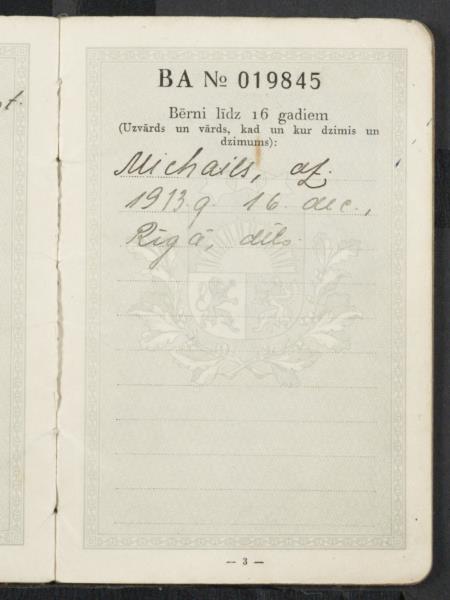 BA № 019845
Bērni līdz 16 gadiem
(Uzvārds un vārds, kad un kur dzimis un
dzimums):
Michails, dz.
1913.g. 16. dec.,
Rīgā, dēls.
— 3 —